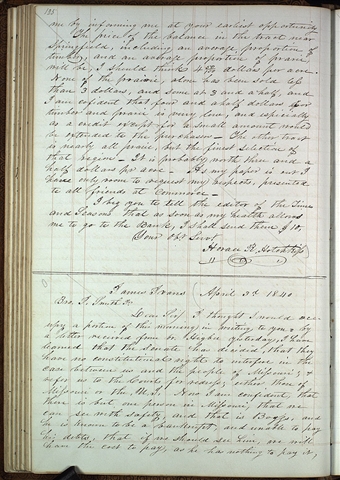 125
me by informing me at your earliest opportunity
The price of the balance in the tract near
Springfield, including an average proportion of
timber, and an average proportion of prairie
will be, I should think 4 dollars per acre.
None of the prairie, alone has been sold less
than 3 dollars, and some at 3 and a half, and
I am confident that four and a half dollars for
timber and prairie is very low, and especially
as a credit except for a small amount would
be extended to the purchasers The other tract
is nearly all prairie, but the finest selection of
that region It is probably worth three and a
half dollars per acre As my paper is out I
have only room to request my respects, presented
to all friends at Commerce
I beg you to tell the editor of the Times
and Seasons that as soon as my health allows
me to go to the Bank, I shall send them $10,
Your Obt Servt
Horace R. Hotchkiss
April 3d 1840
Bro. J. Smith Jr
Dear Sir I thought I would occu-
-py a portion of this morning in writing to you, by
a letter received from Br. Higbee yesterday, I have
learned that the Senate has decided, that they
have no constitutional right to interfere in the
case between us and the people of Missouri; &
refer us to the Courts for redress; either those of
Missouri or the U.S. Now I am confident, that
there is but one person in Missouri, that we
can sue with safety, and that is Boggs, and
he is known to be a bankrupt, and unable to pay
his debts, that if we should sue him, we will
have the cost to pay, as he has nothing to pay it,